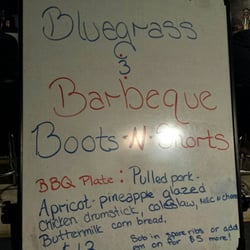 Bluegrass
&
Barbeque
Boots-N-Shorts
BBQ Plate: Pulled pork-
Apricot-pineapple glazed
Chicken drumstick, coleslaw, Mac N Cheese
Buttermilk corn bread.
Sub in spare ribs or add
on for $5 more!